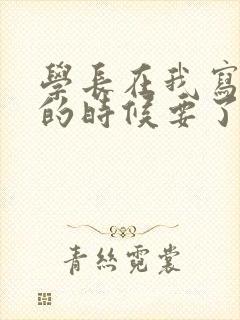 學長在我寫
的時候要了
青絲霓裳